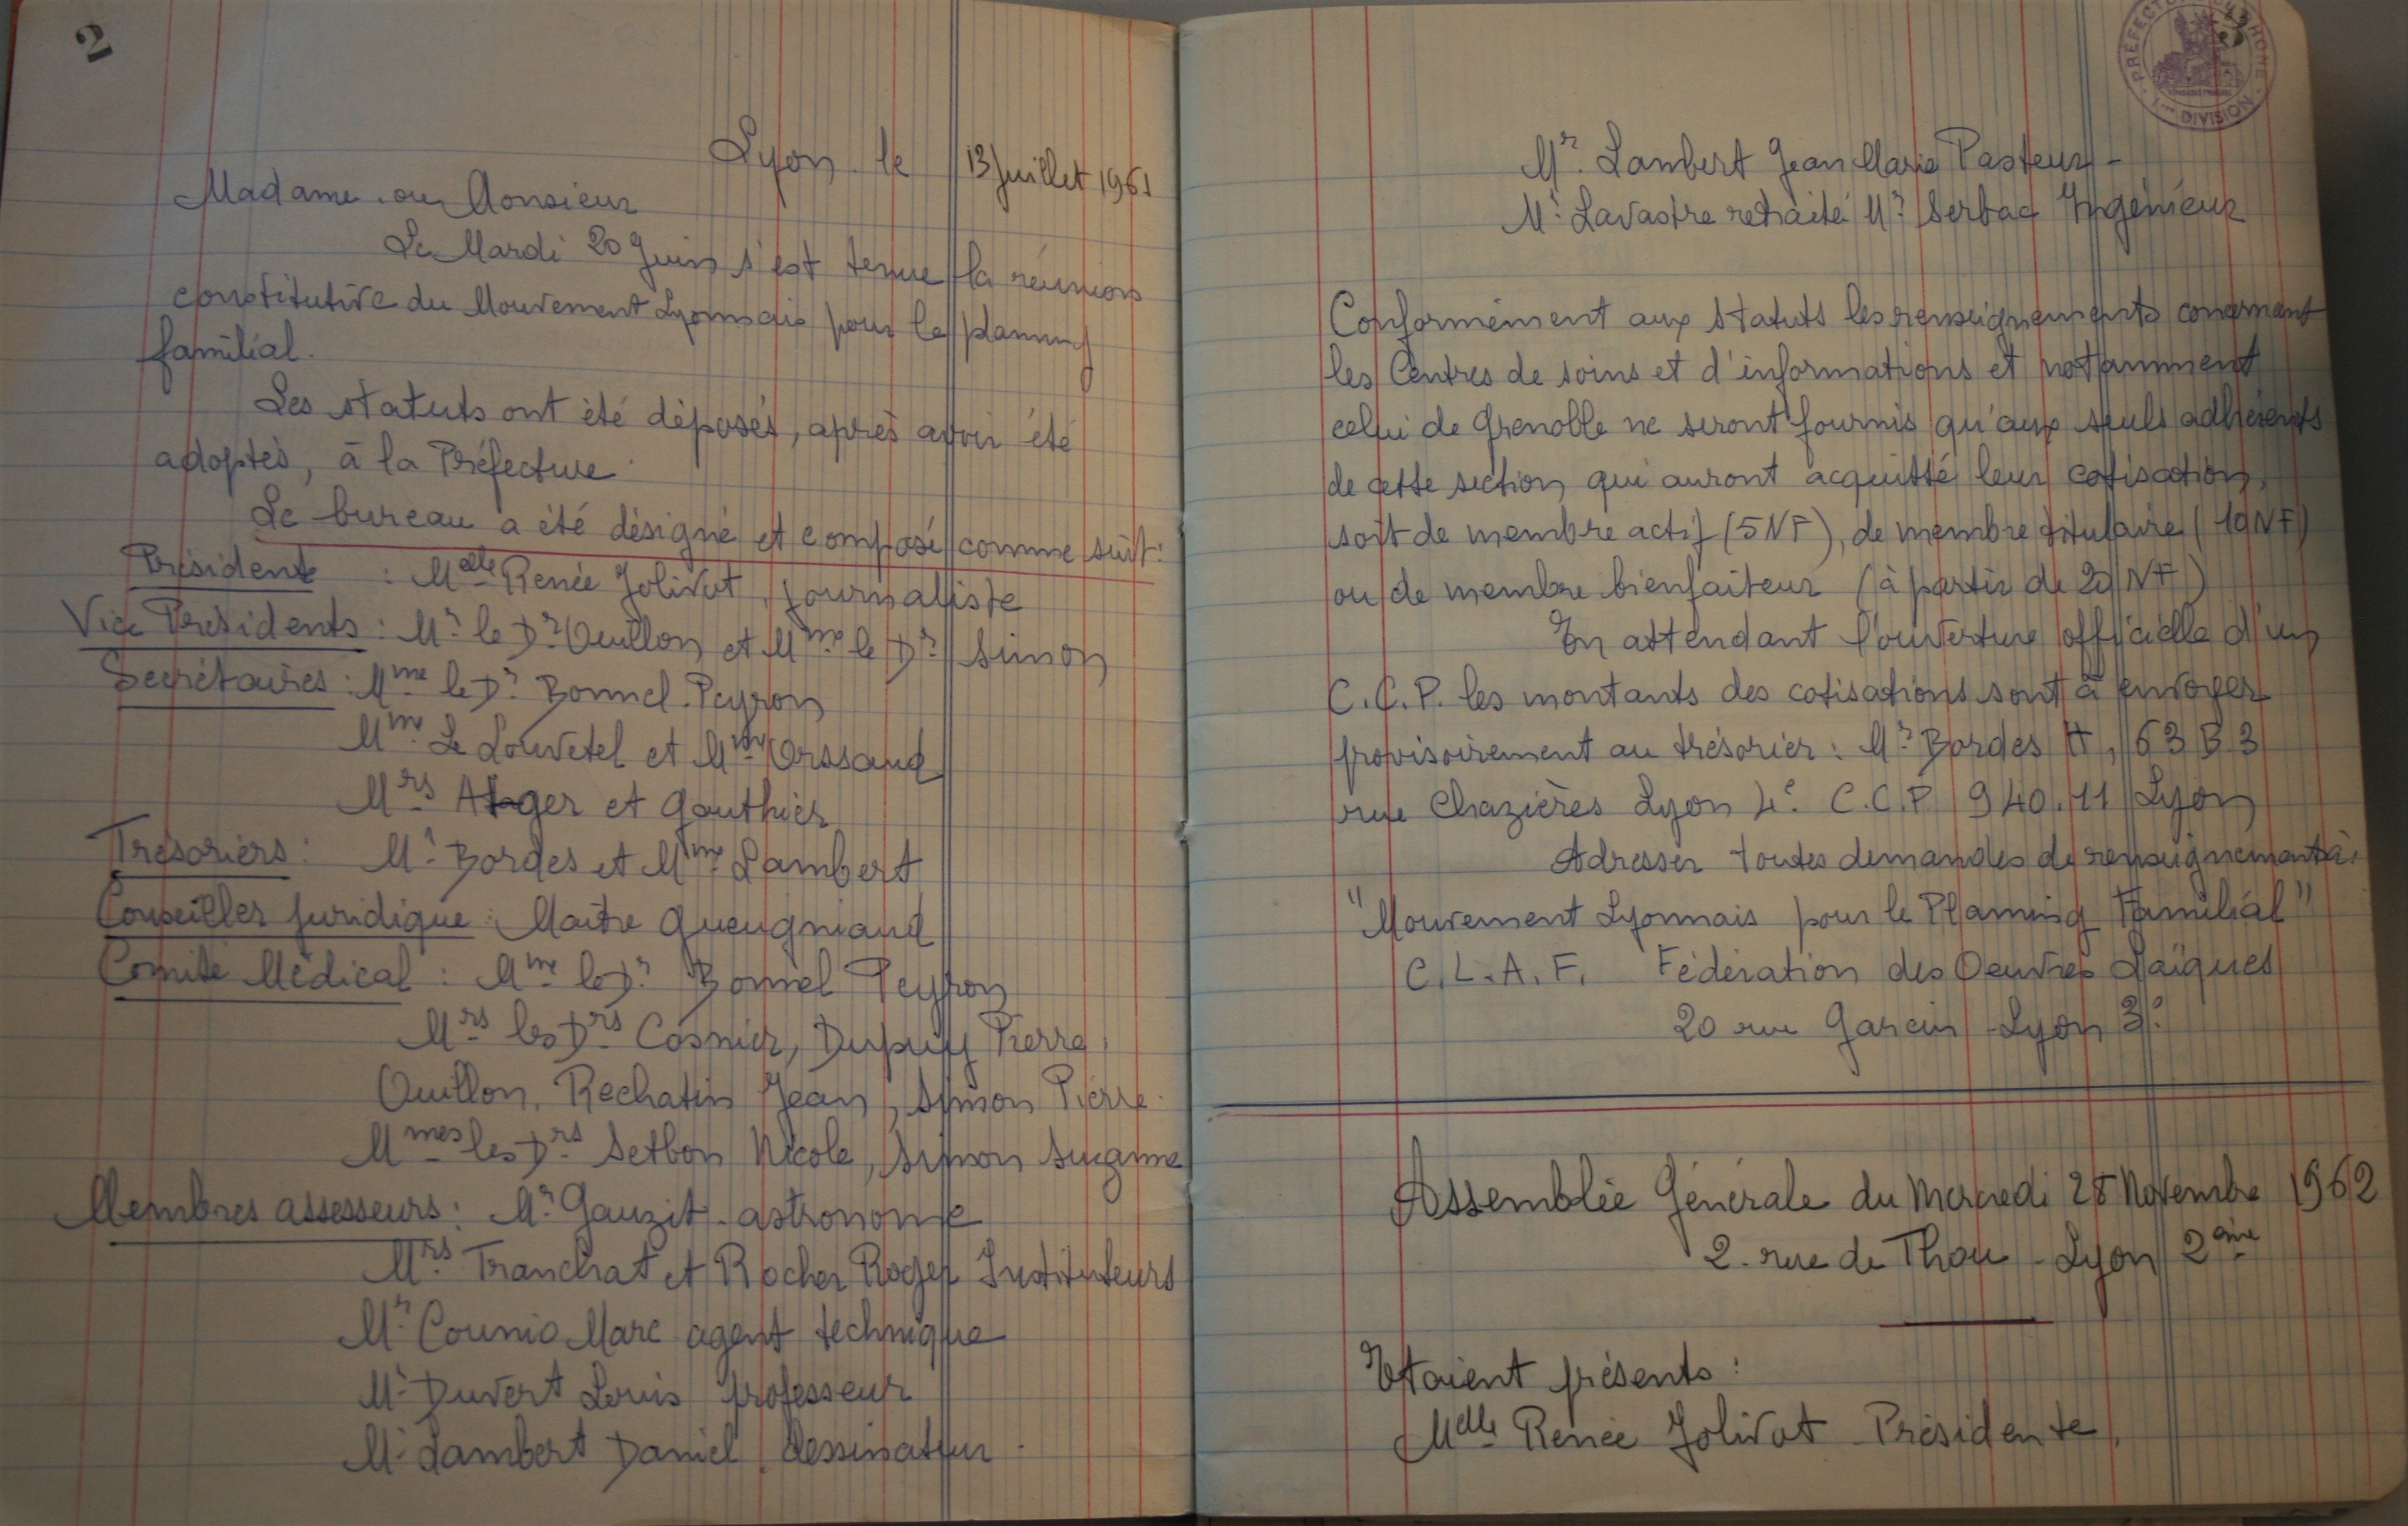 2
Lyon le 13 Juillet 1961
Madame ou Monsieur
Le Mardi 20 Juin s'est tenue la réunion
constitutive du Mouvement Lyonnais pour le planning
familial.
Les statuts ont été déposés, après avoir été
adoptés, à la Préfecture.
Le bureau a été désigné et composé comme suit:
Présidente : Melle Renée Jolivot, journaliste
Vice Présidents : Mr le Dr Ouillon et Mme le Dr Simon
Secrétaires : Mme le Dr Bonnel-Peyron
Mme Le Louvetel et Mme Orssaud
Mrs Alger et Gauthier
Trésoriers : Mr Bordes et Mme Lambert
Conseiller juridique : Maître Gueugniaud
Comité Médical : Mme le Dr Bonnel Peyron
Mrs les Drs Cosnier, Dupuy Pierre,
Ouillon, Rechatin Jean, Simon Pierre.
Mmes les Drs Setbon Nicole, Simon Suzanne
Membres assesseurs : Mr Gauzit - astronome
Mrs Tranchat et Rocher Roger Instituteurs
Mr Counio Marc agent technique
Mr Duvert Louis professeur
Mr Lambert Daniel, dessinateur.
PRÉFECTURE DU RHONE
1ère DIVISION
Mr. Lambert Jean Marie Pasteur -
Mr Lavastre retraité Mr Serbac Ingénieur
Conformément aux statuts les renseignements concernant
les Centres de soins et d'informations et notamment
celui de Grenoble ne seront fournis qu'aux seuls adhérents
de cette section qui auront acquitté leur cotisation,
soit de membre actif (5NF), de membre titulaire (10NF)
ou de membre bienfaiteur (à partir de 20 NF)
En attendant l'ouverture officielle d'un
C.C.P. les montants des cotisations sont à envoyer
provisoirement au trésorier : Mr Bordes H, 63 B.3
rue Chazières Lyon 4e C.C.P 940.11 Lyon
Adresser toutes demandes de renseignements à :
"Mouvement Lyonnais pour le Planning Familial"
C.L.A.F. Fédération des Oeuvres Laïques
20 rue Garcin - Lyon 3e
Assemblée Générale du Mercredi 28 Novembre 1962
2. rue de Thou - Lyon 2ème
Etaient présents :
Melle Renée Jolivot - Présidente,